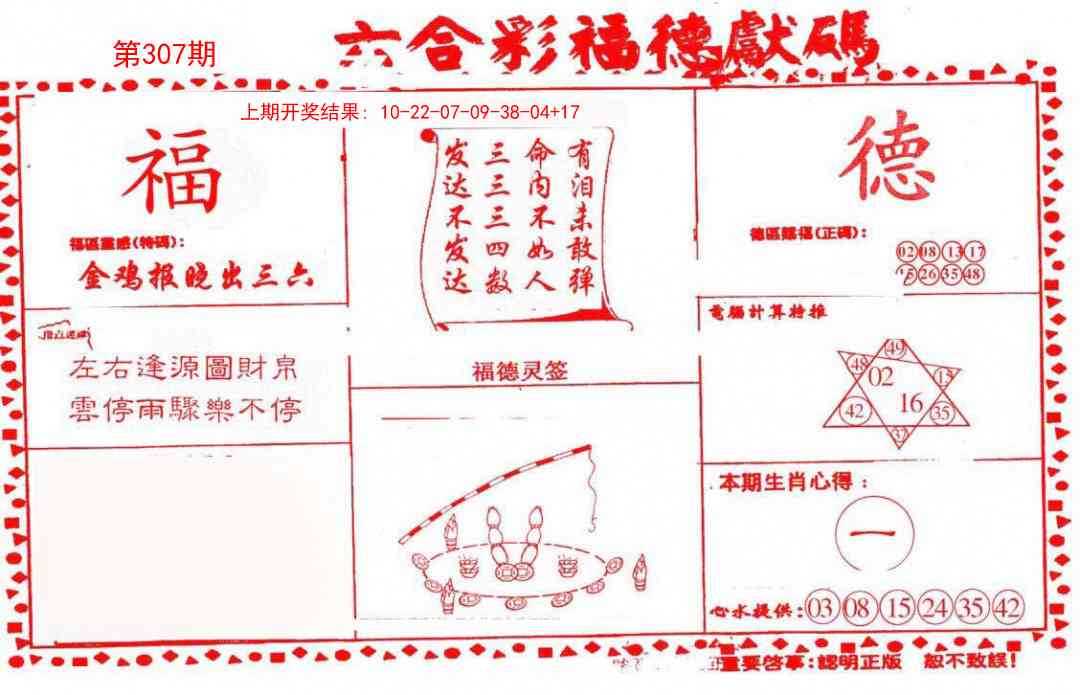 第307期
六合彩福德獻碼
上期开奖结果：10-22-07-09-38-04+17
福
福區靈感(特碼)：
金鸡报晚出三六
左右逢源圖財帛
雲停雨驟樂不停
有泪未敢弹
命内不如人
三三三四数
发达不发达
福德灵签
德
德區賜福(正碼)：
02 08 13 17
15 26 35 48
電腦計算特推
49
48 02 15
42 16 35
37
本期生肖心得：
一
心水提供：03 08 15 24 35 42
重要啓事：認明正版 恕不致誤！